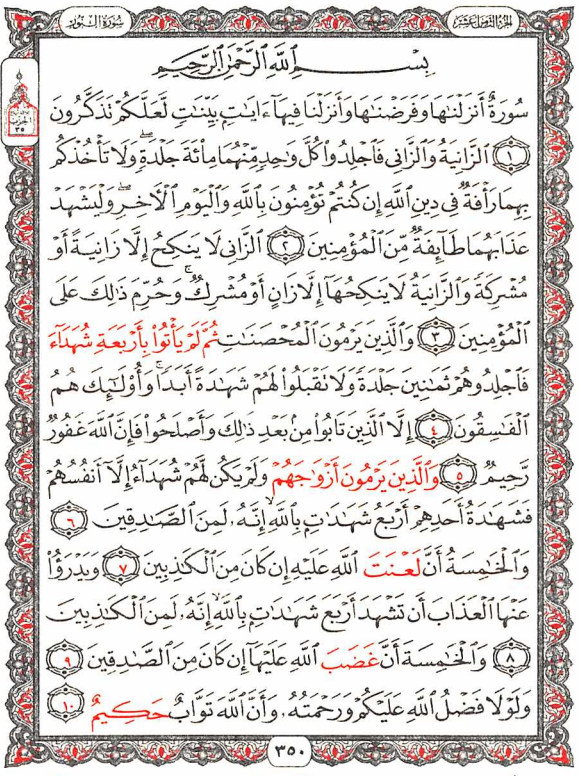 الجزء الثامن عشر
سورة النور
بِسْمِ ٱللَّهِ ٱلرَّحْمَٰنِ ٱلرَّحِيمِ
سُورَةٌ أَنزَلْنَٰهَا وَفَرَضْنَٰهَا وَأَنزَلْنَا فِيهَآ ءَايَٰتٍۭ بَيِّنَٰتٍ لَّعَلَّكُمْ تَذَكَّرُونَ
١ ٱلزَّانِيَةُ وَٱلزَّانِى فَٱجْلِدُوا۟ كُلَّ وَٰحِدٍ مِّنْهُمَا مِا۟ئَةَ جَلْدَةٍ ۖ وَلَا تَأْخُذْكُم
بِهِمَا رَأْفَةٌ فِى دِينِ ٱللَّهِ إِن كُنتُمْ تُؤْمِنُونَ بِٱللَّهِ وَٱلْيَوْمِ ٱلْءَاخِرِ ۖ وَلْيَشْهَدْ
عَذَابَهُمَا طَآئِفَةٌ مِّنَ ٱلْمُؤْمِنِينَ ٢ ٱلزَّانِى لَا يَنكِحُ إِلَّا زَانِيَةً أَوْ
مُشْرِكَةً وَٱلزَّانِيَةُ لَا يَنكِحُهَآ إِلَّا زَانٍ أَوْ مُشْرِكٌ ۚ وَحُرِّمَ ذَٰلِكَ عَلَى
ٱلْمُؤْمِنِينَ ٣ وَٱلَّذِينَ يَرْمُونَ ٱلْمُحْصَنَٰتِ ثُمَّ لَمْ يَأْتُوا۟ بِأَرْبَعَةِ شُهَدَآءَ
فَٱجْلِدُوهُمْ ثَمَٰنِينَ جَلْدَةً وَلَا تَقْبَلُوا۟ لَهُمْ شَهَٰدَةً أَبَدًا ۚ وَأُو۟لَٰٓئِكَ هُمُ
ٱلْفَٰسِقُونَ ٤ إِلَّا ٱلَّذِينَ تَابُوا۟ مِنۢ بَعْدِ ذَٰلِكَ وَأَصْلَحُوا۟ فَإِنَّ ٱللَّهَ غَفُورٌ
رَّحِيمٌ ٥ وَٱلَّذِينَ يَرْمُونَ أَزْوَٰجَهُمْ وَلَمْ يَكُن لَّهُمْ شُهَدَآءُ إِلَّآ أَنفُسُهُمْ
فَشَهَٰدَةُ أَحَدِهِمْ أَرْبَعُ شَهَٰدَٰتٍۭ بِٱللَّهِ ۙ إِنَّهُۥ لَمِنَ ٱلصَّٰدِقِينَ ٦
وَٱلْخَٰمِسَةُ أَنَّ لَعْنَتَ ٱللَّهِ عَلَيْهِ إِن كَانَ مِنَ ٱلْكَٰذِبِينَ ٧ وَيَدْرَؤُا۟
عَنْهَا ٱلْعَذَابَ أَن تَشْهَدَ أَرْبَعَ شَهَٰدَٰتٍۭ بِٱللَّهِ ۙ إِنَّهُۥ لَمِنَ ٱلْكَٰذِبِينَ
٨ وَٱلْخَٰمِسَةَ أَنَّ غَضَبَ ٱللَّهِ عَلَيْهَآ إِن كَانَ مِنَ ٱلصَّٰدِقِينَ ٩
وَلَوْلَا فَضْلُ ٱللَّهِ عَلَيْكُمْ وَرَحْمَتُهُۥ وَأَنَّ ٱللَّهَ تَوَّابٌ حَكِيمٌ ١٠
٣٥٠
الحزب
٣٥